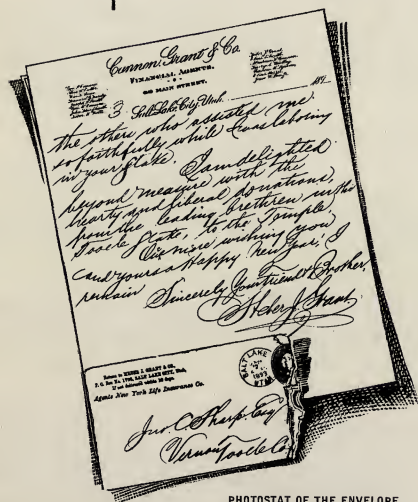 Cannon, Grant & Co.
FINANCIAL AGENTS,
60 MAIN STREET.
3. Salt Lake City, Utah, 189
the others who assisted me
so faithfully while I was laboring
in your Stake.
I am delighted
beyond measure with the
hearty and liberal donations,
from the leading brethren in the
Tooele Stake, to the Temple
Once more wishing you
and yours a Happy New Year, I
remain
Sincerely Your friend & Brother,
Heber J. Grant
Return to HEBER J. GRANT & CO.
P. O. Box No. 1704, SALT LAKE CITY, Utah,
If not delivered within 10 days.
Agents New York Life Insurance Co.
SALT LAKE
1893
Jno. C. Sharp, Esq
Vernon Tooele Co
PHOTOSTAT OF THE ENVELOPE